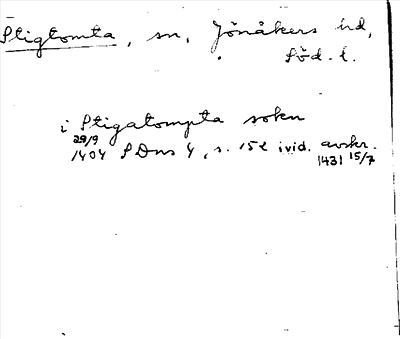 Stigtomta, sn, Jönåkers hd,
Söd. l.
i Stigatompta sokn
29/9
1404 SDns 4, s. 152 i vid. avskr.
1431 15/7